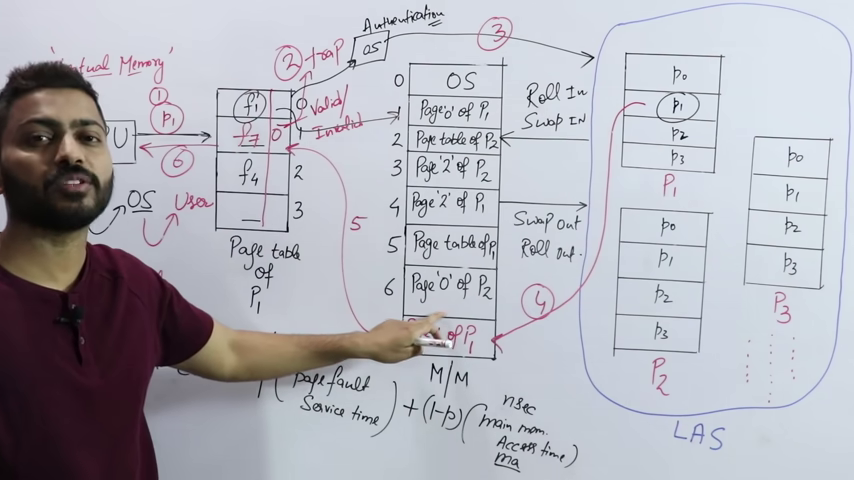 Virtual Memory
①
p1
⑥
OS
User
② trap
Authentication
OS
③
f1
f7
f4
0
Valid/
Invalid
0
1
2
3
Page table
of
P1
5
0 OS
1 Page '0' of P1
2 Page table of P2
3 Page '2' of P2
4 Page '2' of P1
5 Page table of P1
6 Page '0' of P2
of P1
M/M
Roll In
Swap IN
Swap out
Roll out.
④
p0
p1
p2
p3
P1
p0
p1
p2
p3
P2
p0
p1
p2
p3
P3
LAS
(page fault
Service time) + (1-p) (nsec
main mem.
Access time)
ma